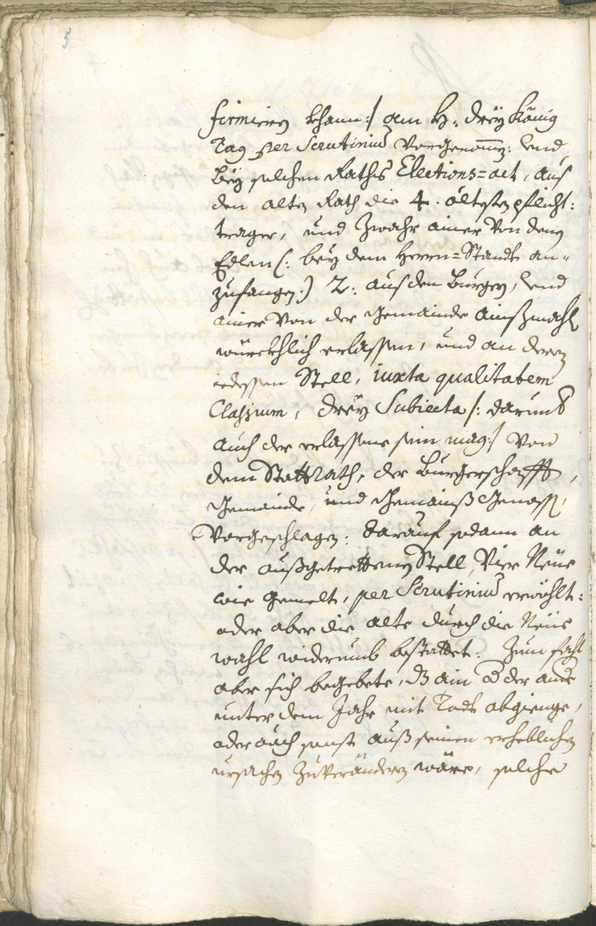 5
firmiren khann :/ am H: drey König
Tag per Scrutiniũ vorgenom̃en: und
bey solchen Raths Elections=act, auß
den alten Rath die 4. öltesten pflicht:
trager, und zwahr ainer von dem
Edlen (: bey dem Herrn=Standt an=
zufangen:) 2: auß den Burgern, und
ainer von der Gemainde
würckhlich erlassen, und an deren
Stell, iuxta qualitatem
Classium, drey Subiecta /: darunter
auch der erlassene sein mag :/ von
dem Stattrath, der Burgerschafft,
Gemainde, und
vorgeschlagen: darauf sodann an
der außgetrettenen Stell, Vier Neue
wie gemelt, per Scrutiniũ erwöhlt:
oder aber die alte durch die Neue
wahl widerumb bestättet: Zum fahl
aber sich begebete, dz ain oder der ander
unter dem Jahr mit Todt abgienge,
oder auch sonst auß seinen erheblichen
ursachen zuverändern wäre, solche